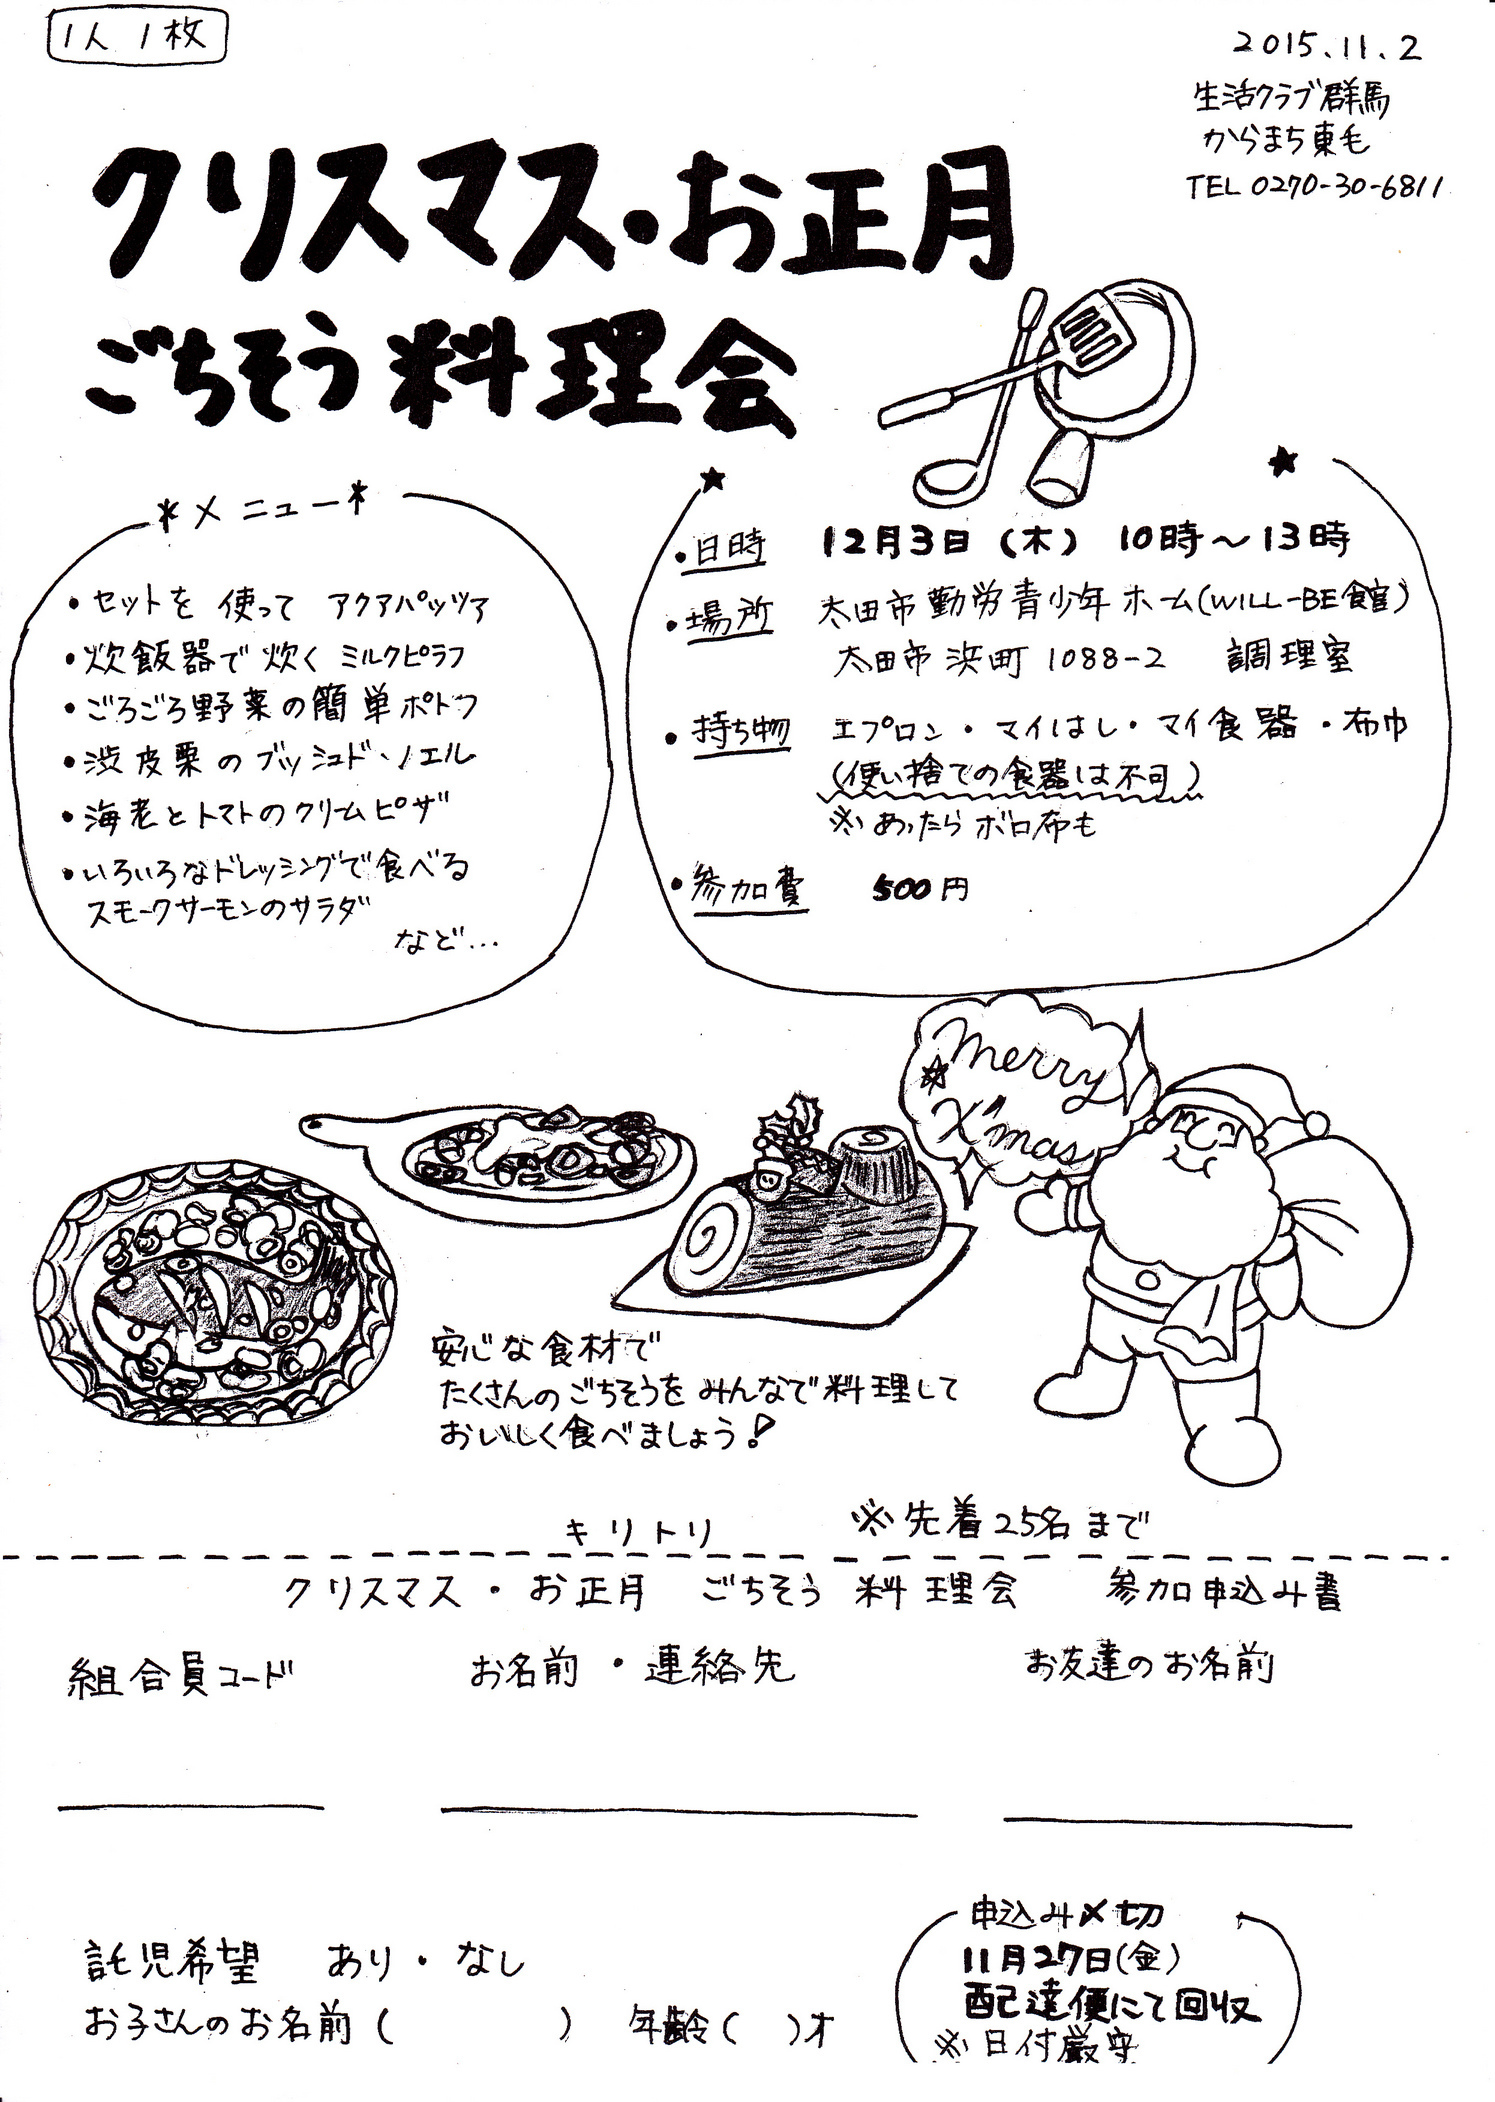 1人1枚
2015.11.2
生活クラブ群馬
からまち東毛
TEL 0270-30-6811
クリスマス・お正月
ごちそう料理会
*メニュー*
・セットを使って アクアパッツァ
・炊飯器で炊く ミルクピラフ
・ごろごろ野菜の簡単ポトフ
・渋皮栗のブッシュド・ノエル
・海老とトマトのクリームピザ
・いろいろなドレッシングで食べる
スモークサーモンのサラダ
など…
・日時 12月3日(木) 10時〜13時
・場所 太田市勤労青少年ホーム(WILL-BE館)
太田市浜町1088-2 調理室
・持ち物 エプロン・マイはし・マイ食器・布巾
(使い捨ての食器は不可)
※あったらボロ布も
・参加費 500円
Merry
X'mas
安心な食材で
たくさんのごちそうをみんなで料理して
おいしく食べましょう!
※先着25名まで
キリトリ
クリスマス・お正月 ごちそう料理会 参加申込み書
組合員コード お名前・連絡先 お友達のお名前
託児希望 あり・なし
お子さんのお名前( ) 年齢( )才
申込み〆切
11月27日(金)
配達便にて回収
※日付厳守